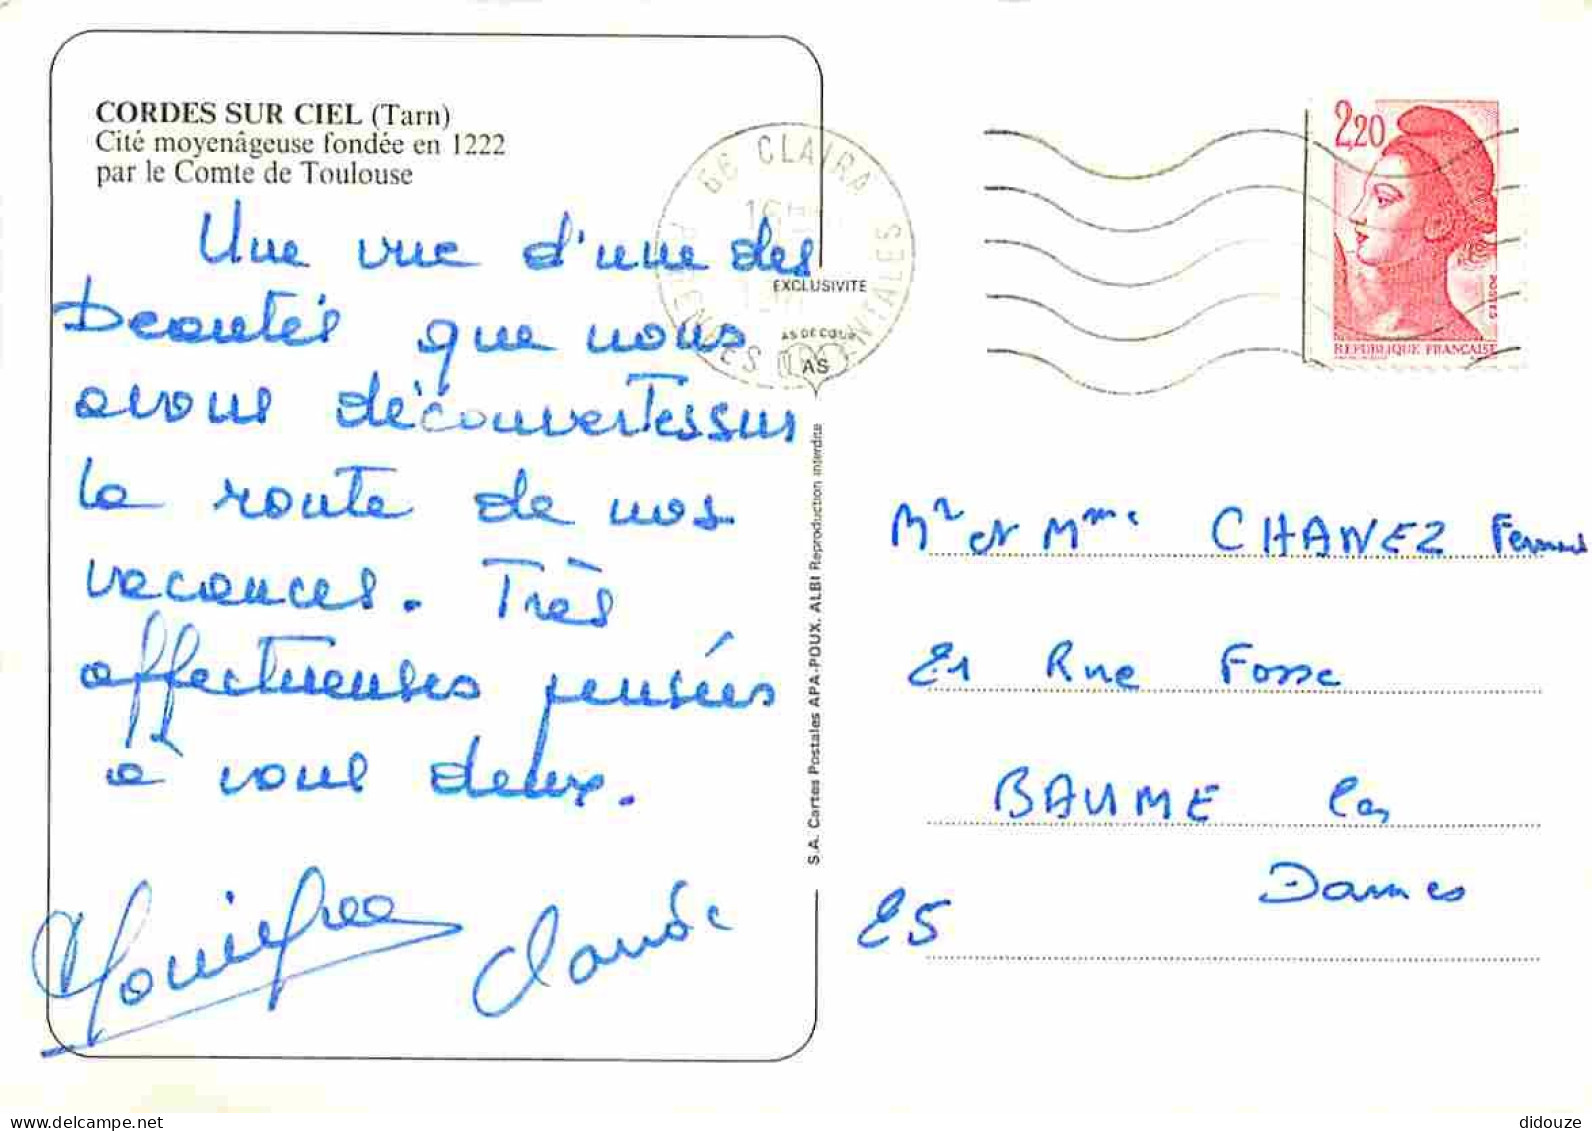 CORDES SUR CIEL (Tarn)
Cité moyenâgeuse fondée en 1222
par le Comte de Toulouse
Une vue d'une des
Beautés que nous
avons découvertes sur
la route de nos
vacances. Très
affectueuses pensées
à vous deux.
Claude
66 CLAIRA
PYRENEES ORIENTALES
EXCLUSIVITE
AS DE CŒUR
AS
S.A. Cartes Postales APA-POUX, ALBI Reproduction interdite
2,20
POSTES
REPUBLIQUE FRANCAISE
Mr et Mme CHANEZ
21 Rue Fosse
BAUME les
Dames
25
delcampe.net
didouze